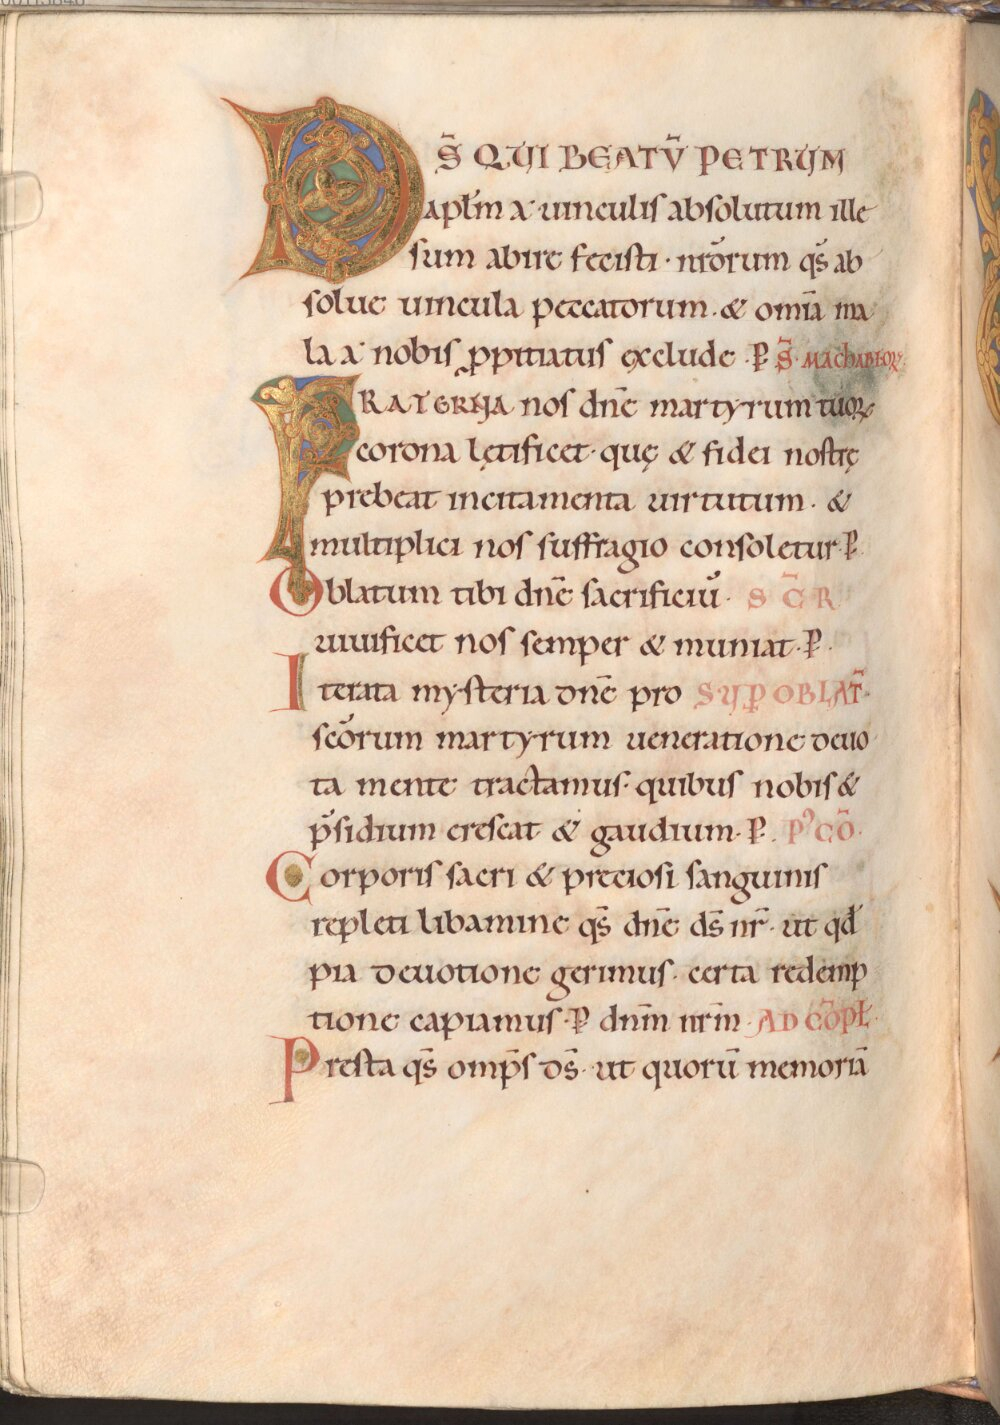 DS̄ QUI BEATŪ PETRUM
apłm a uinculis absolutum ille
sum abire fecisti · nr̄orum qs̄ ab
solue uincula peccatorum · & om̄ia ma
la a nobis ꝓpitiatus exclude · P̱ S̄ · MACHABEORꝝ
FRATERNA nos dn̄e martyrum tuoꝝ
corona lętificet · quę & fidei nostrę
prebeat incitamenta uirtutum · &
multiplici nos suffragio consoletur · P̱
Oblatum tibi dn̄e sacrificiū · SC̄R
uiuificet nos semper & muniat · P̱ ·
Iterata mysteria dn̄e pro SUP OBLAT̄
sc̄orum martyrum ueneratione deuo
ta mente tractamus · quibus nobis &
p̄sidium crescat & gaudium · P̱ · PꝰCŌ ·
Corporis sacri & preciosi sanguinis
repleti libamine qs̄ dn̄e ds̄ nr̄ · ut qđ
pia deuotione gerimus · certa redemp
tione capiamus · P̱ dn̄m nr̄m · AD CŌPŁ ·
Presta qs̄ omp̄s ds̄ · ut quorū memoriā